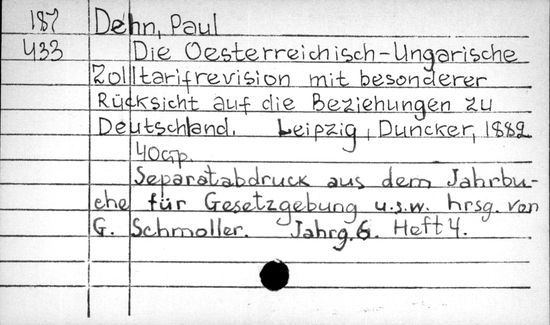 187 Dehn, Paul
433 Die Oesterreichisch-Ungarische
Zolltarifrevision mit besonderer
Rücksicht auf die Beziehungen zu
Deutschland. Leipzig, Duncker, 1882
40 S.
Separatabdruck aus dem Jahrbu-
che für Gesetzgebung u.s.w. hrsg. von
G. Schmoller. Jahrg. 6. Heft 4.